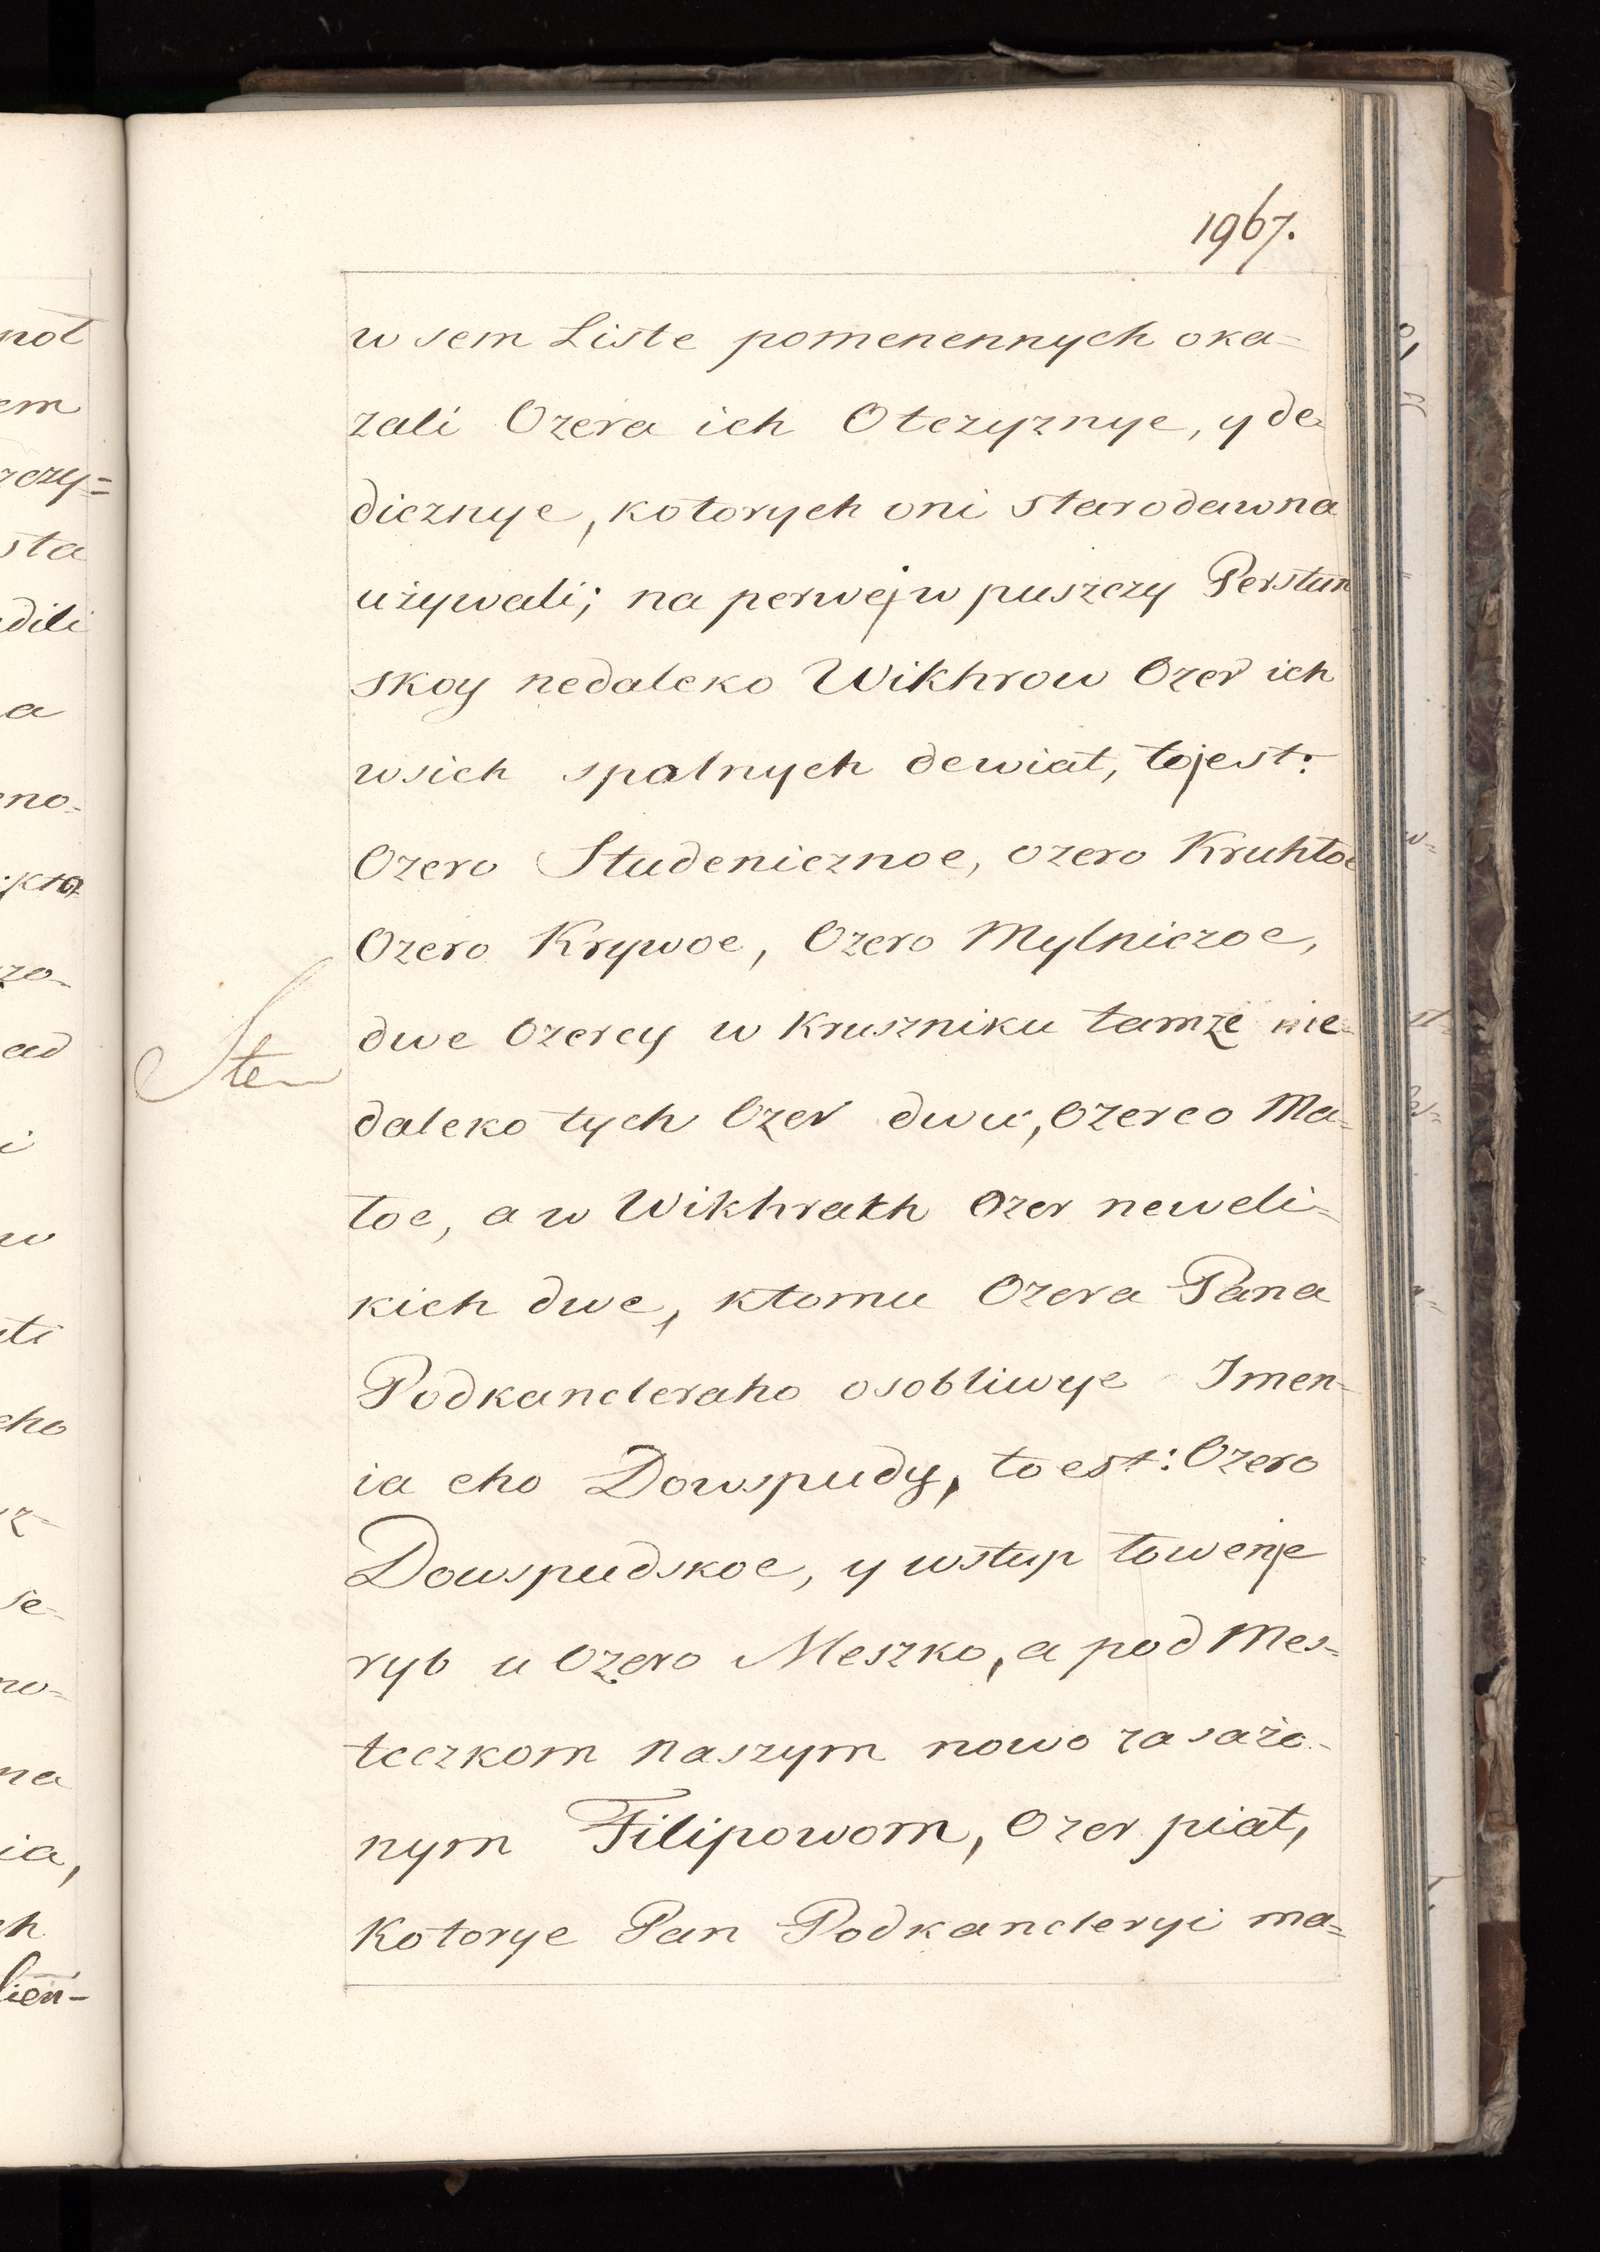 1967.
w sem Liste pomenennych oka=
zali Ozera ich Otczyznye, y de=
dicznye, kotorych oni starodawna
używali; na perwej w puszczy Perstun
skoy nedaleko Wikhrow Ozer ich
wsich spalnych dewiat, tojest:
Ozero Studenicznoe, ozero Kruhłoe
Ozero Krywoe, Ozero Mylniczoe,
dwe Ozercy w Kruszniku tamże nie=
daleko tych Ozer dwu, Ozerco Ma=
łoe, a w Wikhrakh Ozer neweli=
kich dwe, ktomu Ozera Pana
Podkancleraho osobliwye Imen=
ia eho Dowspudy, to est: Ozero
Dowspudskoe, y wstup łowenje
ryb u Ozero Meszko, a pod Mes=
teczkom naszym nowo zasażo=
nym Filipowom, Ozer piat,
Kotorye Pan Podkancleryi ma=